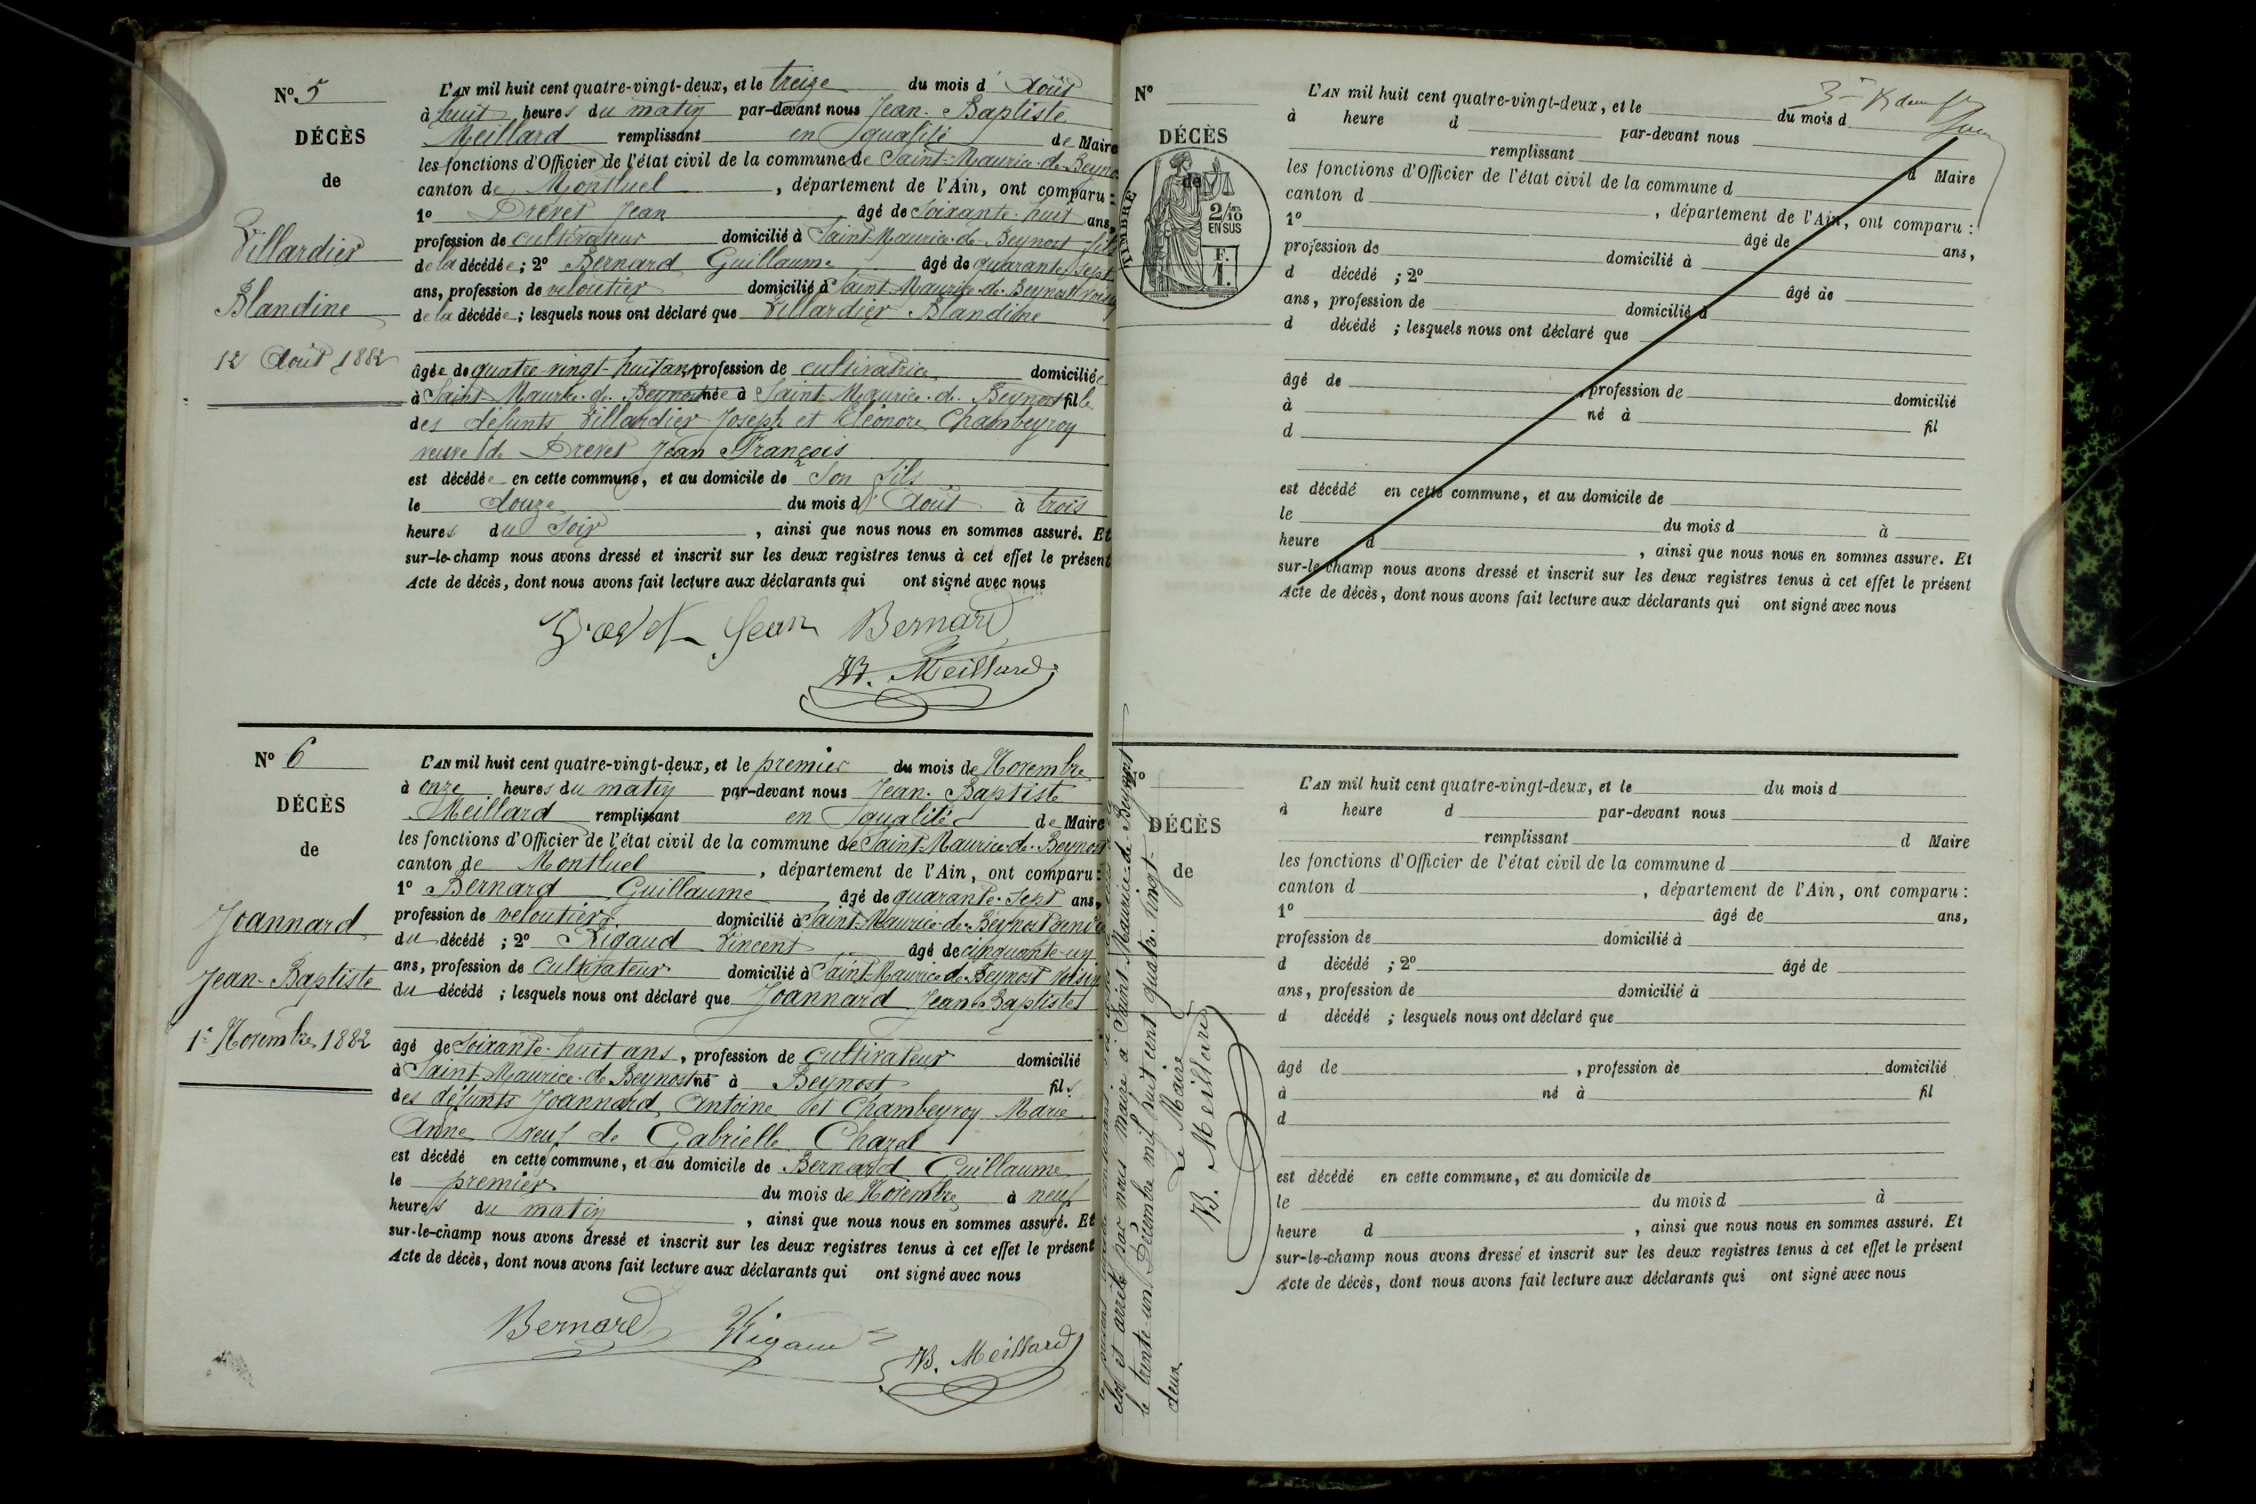 No 5
DÉCÈS
de
Villardier
Blandine
12 Août 1882
L'AN mil huit cent quatre-vingt-deux, et le treize du mois d'Août
à huit heures du matin par-devant nous Jean-Baptiste
Meillard remplissant en qualité de Maire
les fonctions d'Officier de l'état civil de la commune de Saint-Maurice-de-Beyno
canton de Montluel, département de l'Ain, ont comparu :
1o Drevet Jean âgé de soixante-huit ans,
profession de cultivateur domicilié à Saint-Maurice-de-Beynost fils
de la décédée ; 2o Bernard Guillaume âgé de quarante sept
ans, profession de veloutier domicilié à Saint-Maurice-de-Beynost voisin
de la décédée ; lesquels nous ont déclaré que Villardier Blandine
âgée de quatre-vingt-huit ans, profession de cultivatrice domiciliée
à Saint-Maurice-de-Beynost née à Saint-Maurice-de-Beynost fille
des défunts Villardier Joseph et Eléonore Chambeyroy
veuve de Drevet Jean François
est décédée en cette commune, et au domicile de son fils
le douze du mois d'Août à trois
heures du soir, ainsi que nous nous en sommes assuré. Et
sur-le-champ nous avons dressé et inscrit sur les deux registres tenus à cet effet le présent
Acte de décès, dont nous avons fait lecture aux déclarants qui ont signé avec nous
Drevet Jean Bernard
JB. Meillard
No 6
DÉCÈS
de
Joannard
Jean-Baptiste
1er Novembre 1882
L'AN mil huit cent quatre-vingt-deux, et le premier du mois de Novembre
à onze heures du matin par-devant nous Jean-Baptiste
Meillard remplissant en qualité de Maire
les fonctions d'Officier de l'état civil de la commune de Saint-Maurice-de-Beynost
canton de Montluel, département de l'Ain, ont comparu :
1o Bernard Guillaume âgé de quarante-sept ans,
profession de veloutier domicilié à Saint-Maurice-de-Beynost gendre
du décédé ; 2o Rigaud Vincent âgé de cinquante-un
ans, profession de cultivateur domicilié à Saint-Maurice-de-Beynost voisin
du décédé ; lesquels nous ont déclaré que Joannard Jean-Baptiste
âgé de soixante-huit ans, profession de cultivateur domicilié
à Saint-Maurice-de-Beynost né à Beynost fils
des défunts Joannard Antoine et Chambeyroy Marie
Anne veuf de Gabrielle Chazel
est décédé en cette commune, et au domicile de Bernard Guillaume
le premier du mois de Novembre à neuf
heures du matin, ainsi que nous nous en sommes assuré. Et
sur-le-champ nous avons dressé et inscrit sur les deux registres tenus à cet effet le présent
Acte de décès, dont nous avons fait lecture aux déclarants qui ont signé avec nous
Bernard Rigaud
JB. Meillard
clos et arrêté par nous maire à Saint-Maurice-de-Beynost
le trente-un Décembre mil huit cent quatre-vingt-
deux
Le Maire
JB. Meillard
No
DÉCÈS
de
TIMBRE
2/10
EN SUS
F.
1.
L'AN mil huit cent quatre-vingt-deux, et le du mois d
à heure d par-devant nous
remplissant d Maire
les fonctions d'Officier de l'état civil de la commune d
canton d , département de l'Ain, ont comparu :
1o âgé de ans,
profession de domicilié à
d décédé ; 2o âgé de
ans, profession de domicilié à
d décédé ; lesquels nous ont déclaré que
âgé de , profession de domicilié
à né à fil
d
est décédé en cette commune, et au domicile de
le du mois d à
heure d , ainsi que nous nous en sommes assuré. Et
sur-le-champ nous avons dressé et inscrit sur les deux registres tenus à cet effet le présent
Acte de décès, dont nous avons fait lecture aux déclarants qui ont signé avec nous
No
DÉCÈS
de
L'AN mil huit cent quatre-vingt-deux, et le du mois d
à heure d par-devant nous
remplissant d Maire
les fonctions d'Officier de l'état civil de la commune d
canton d , département de l'Ain, ont comparu :
1o âgé de ans,
profession de domicilié à
d décédé ; 2o âgé de
ans, profession de domicilié à
d décédé ; lesquels nous ont déclaré que
âgé de , profession de domicilié
à né à fil
d
est décédé en cette commune, et au domicile de
le du mois d à
heure d , ainsi que nous nous en sommes assuré. Et
sur-le-champ nous avons dressé et inscrit sur les deux registres tenus à cet effet le présent
Acte de décès, dont nous avons fait lecture aux déclarants qui ont signé avec nous